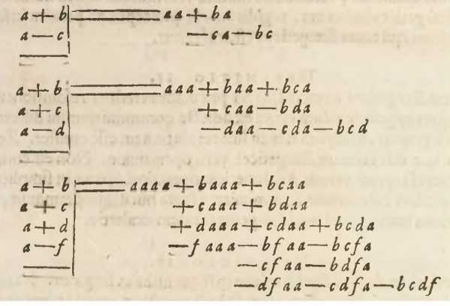 a + b | ═══ aa + ba
a — c | — ca — bc
a + b | ═══ aaa + baa + bca
a + c | + caa — bda
a — d | — daa — cda — bcd
a + b | ═══ aaaa + baaa + bcaa
a + c | + caaa + bdaa
a + d | + daaa + cdaa + bcda
a — f | — faaa — bfaa — bcfa
— cfaa — bdfa
— dfaa — cdfa — bcdf